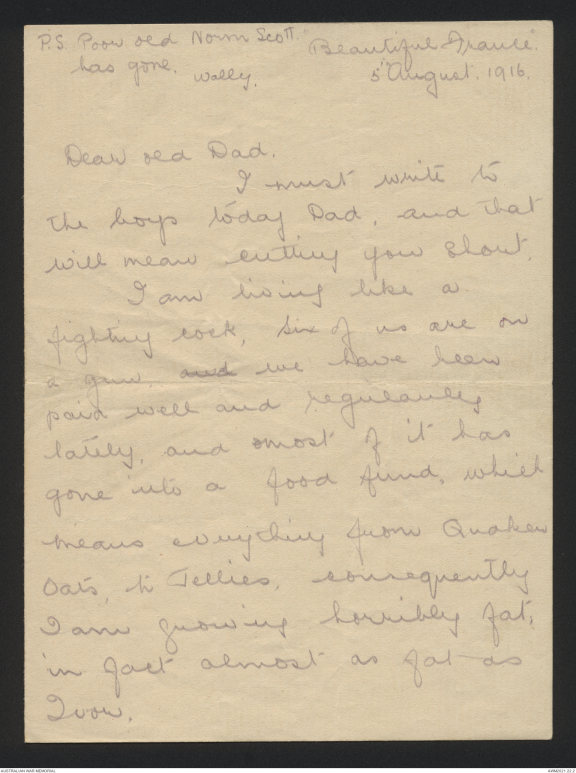 P.S. Poor old Norm Scott
has gone. Wally.
"Beautiful France".
5th August. 1916.
Dear old Dad.
I must write to
the boys today Dad, and that
will mean cutting you short.
I am living like a
fighting cock, six of us are on
a gun, and we have been
paid well and regularly
lately, and most of it has
gone into a food fund, which
means everything from Quaker
Oats, to Jellies, consequently
I am growing horribly fat,
in fact almost as fat as
Ivor.
AUSTRALIAN WAR MEMORIAL